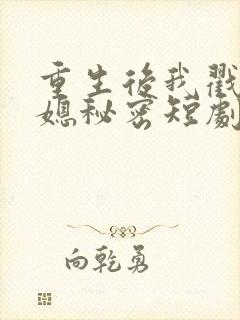 重生後我戳
媳秘密短劇
向乾勇